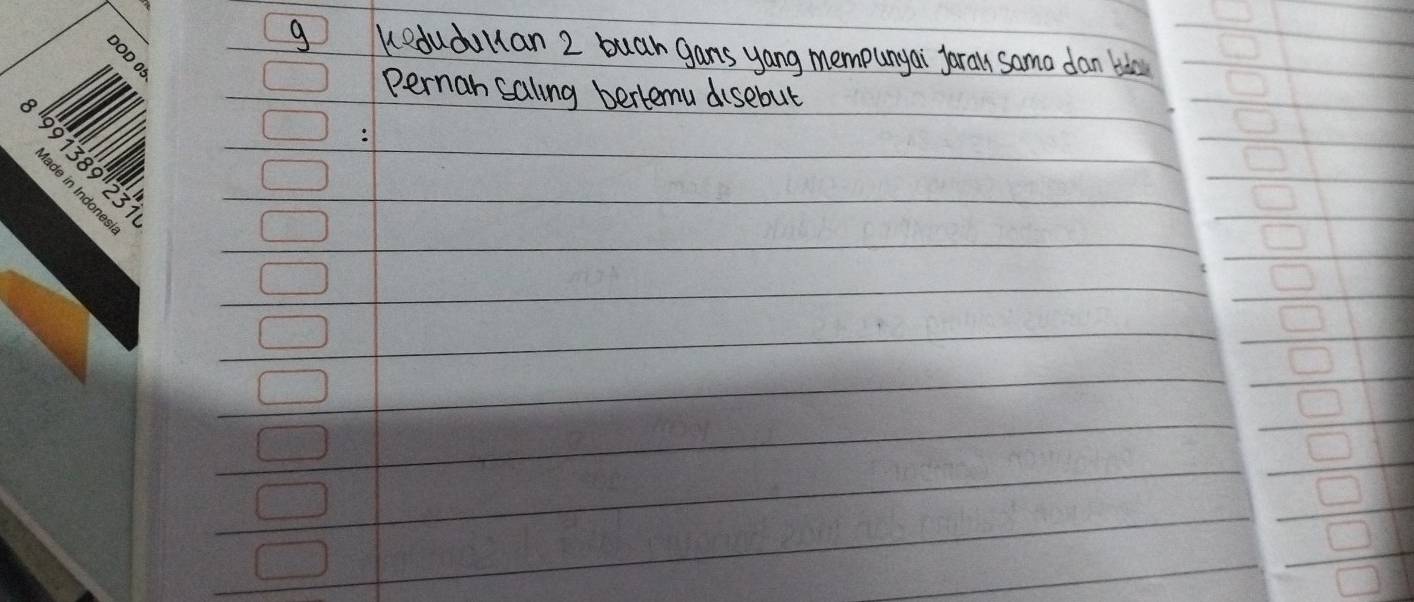 DOD 05
8 991389 2310
Made in Indonesia
9 Kedudukan 2 buah garis yang mempunyai Jarak sama dan
Pernah saling bertemu disebut
: